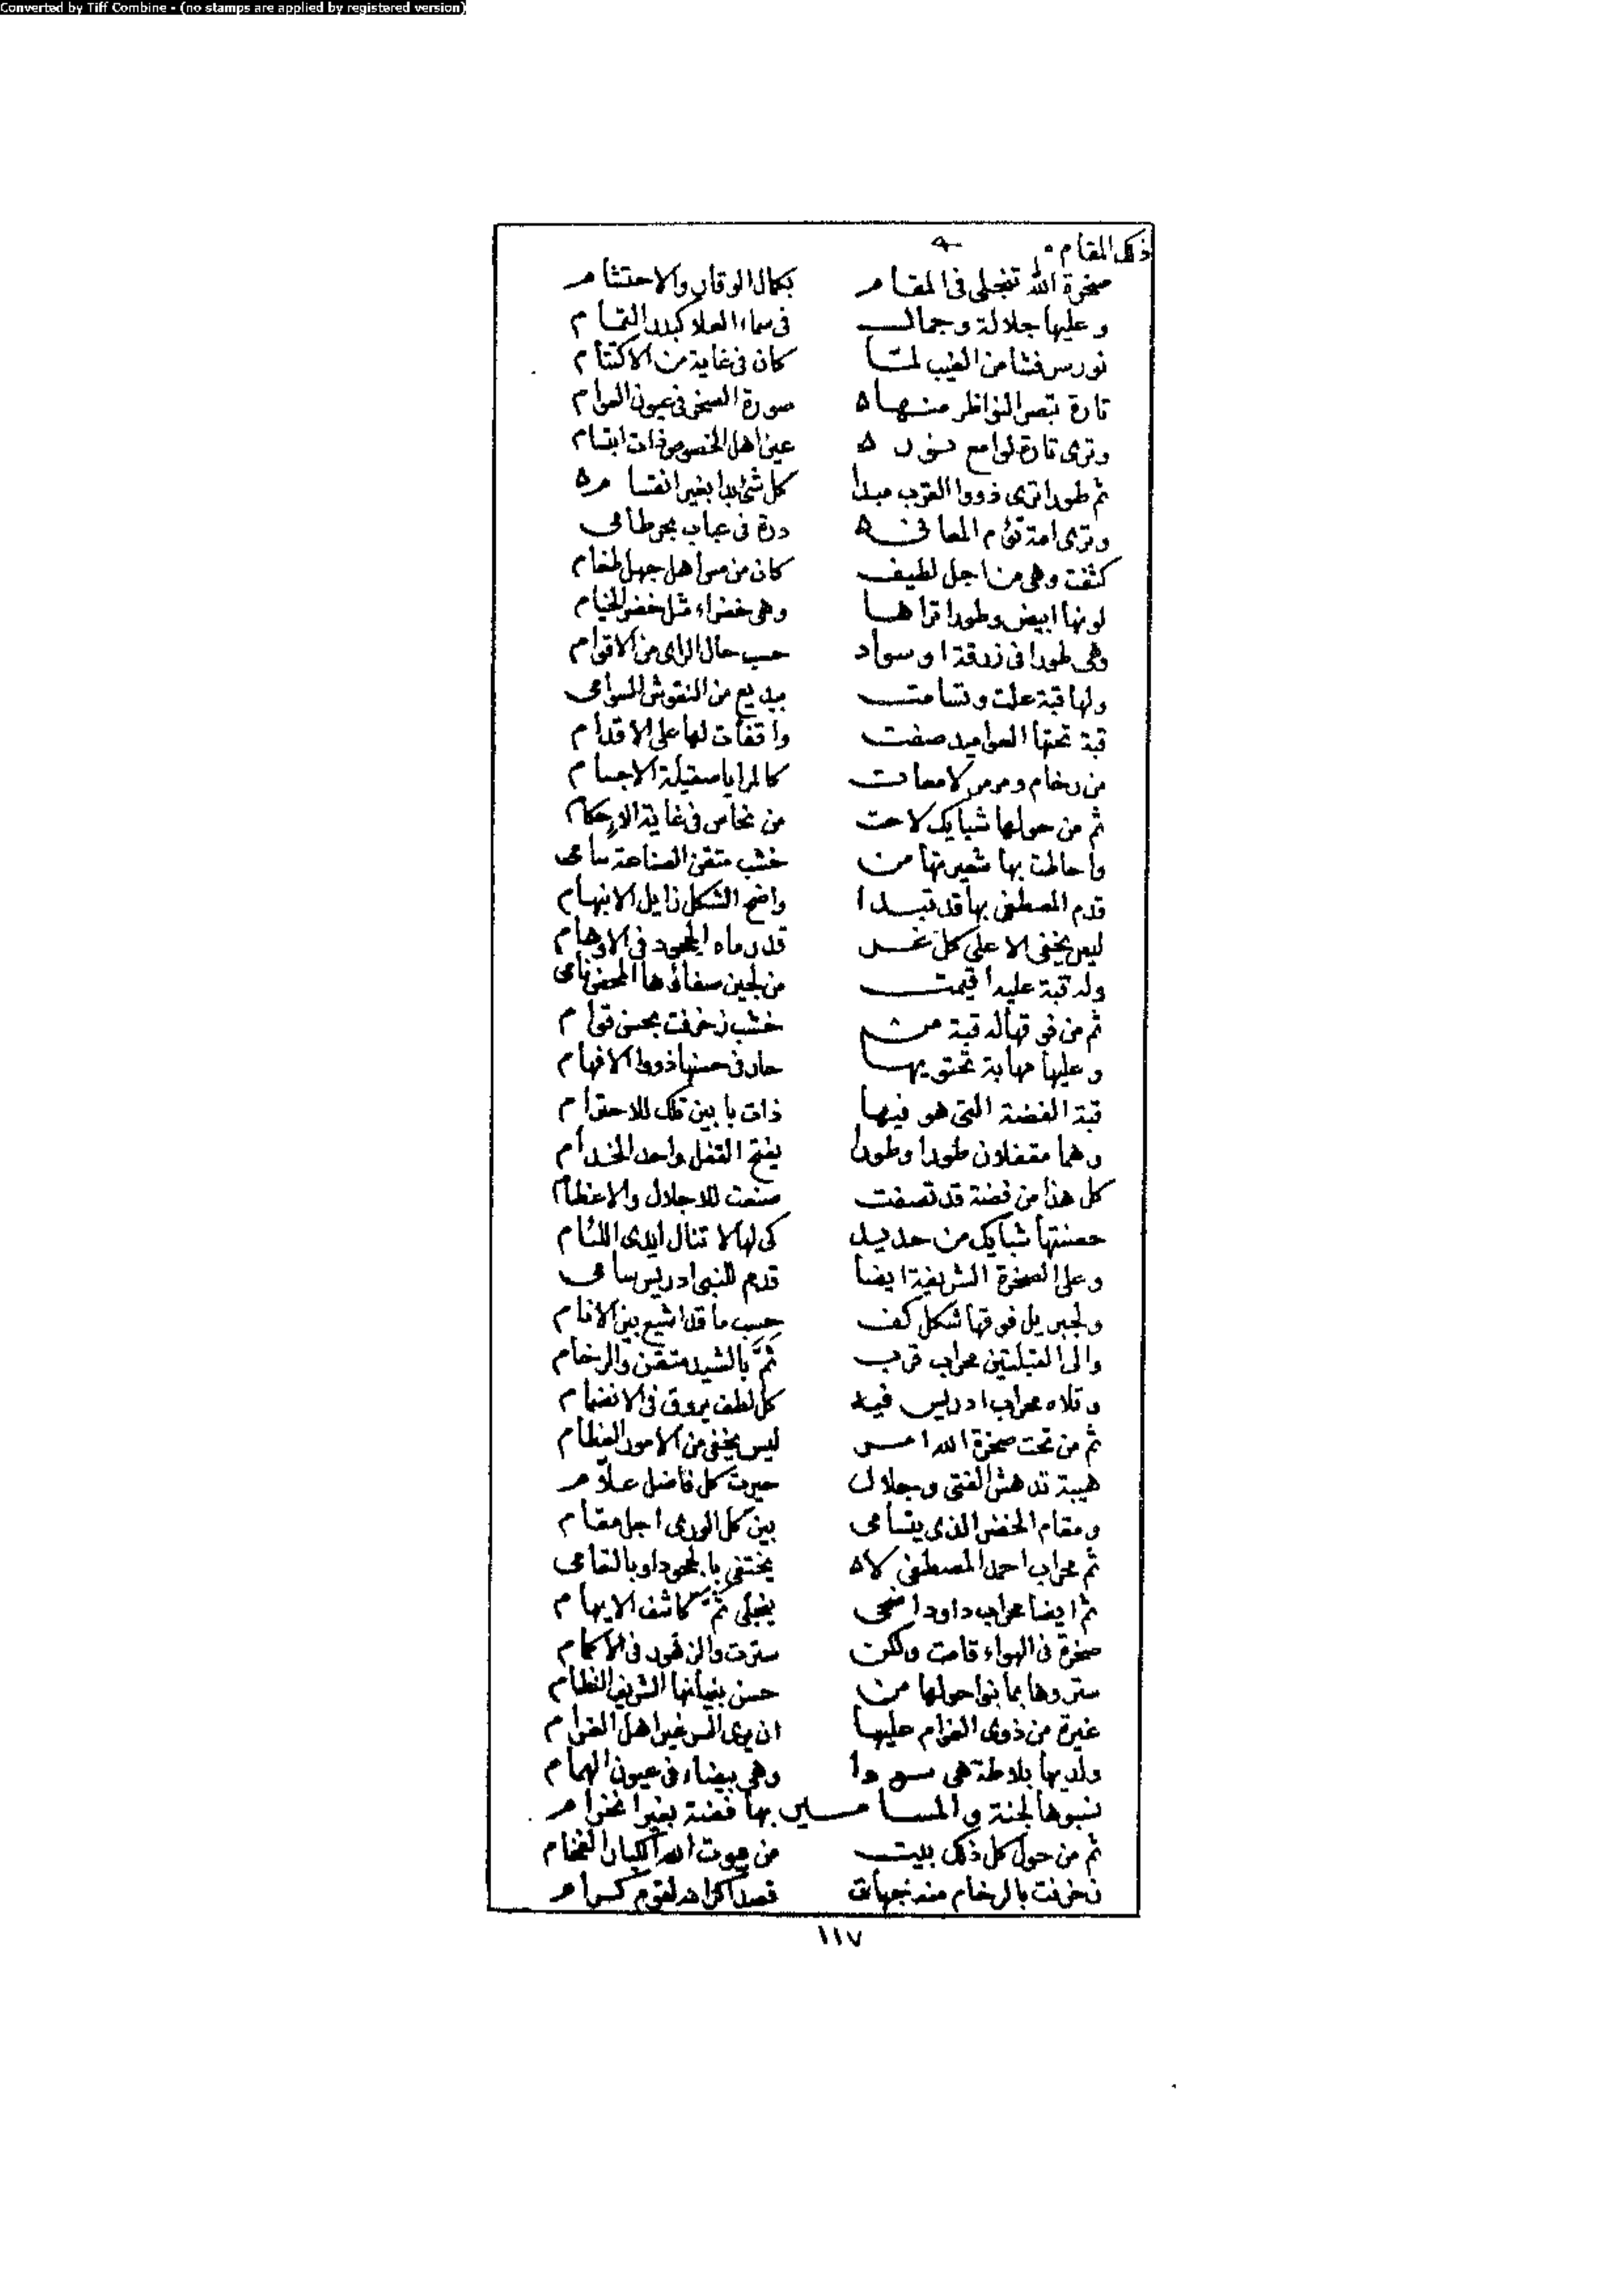 Converted by Tiff Combine - (no stamps are applied by registered version)
ذلك المقام
صخرة الله تنجلى فى المقام بكمال الوقار والاحتشام
وعليها جلالة وجمال فى سماء العلا كبدر التمام
نور سر فشا من الغيب لما كان فى غاية من الاكتتام
تارة تبصر النواظر منها صورة الصخر فى عيون العوام
وترى تارة لوامع نور عين اهل الخصوص ذات ابتسام
ثم طورا ترى ذووا القرب مبدا كل شئ بدا بغير انقسام
وترى امة تؤم المعانى درة فى عباب بحر طامى
كثفت وهى من اجل لطيف كان من مس اهل جهل طغام
لونها ابيض وطورا تراها وهى خضراء مثل خضر الخيام
وهى طورا فى زرقة او سواد حسب حال الراى من الاقوام
ولها قبة علت وتسامت ببديع من النقوش السوامى
قبة تحتها العواميد صفت واقفات لها على الاقدام
من رخام ومرمر لامعات كالمرايا صقيلة الاجسام
ثم من حولها شبابيك لاحت من نحاس فى غاية الاحكام
واحاطت بها شعيرتها من خشب متقن الصناعة سامى
قدم المصطفى بها قد تبدا واضح الشكل زايل الابهام
ليس يخفى الا على كل غر قد رماه الجحود فى الاوهام
وله قبة عليه اقيمت من لجين صفاؤها المحض نامى
ثم من فوقها له قبة من خشب زخرفت بحسن قوام
وعليها مهابة تحتويها حار فى حسنها ذووا الافهام
قبة الفضة التى هو فيها ذات بابين تلك للاحترام
وهما مقفلان طورا وطورا يفتح القفل واحد الخدام
كل هذا من فضة قد تصفت صنعت للاجلال والاعظام
حصنتها شبابيك من حديد كى لها لا تنال ايدى اللئام
وعلى الصخرة الشريفة ايضا قدم للنبى ادريس سامى
ولجبريل فوقها شكل كف حسب ما قد اشيع بين الانام
والى القبلتين محراب قرب ثم بالشيد متقن والرخام
وتلاه محراب ادريس فيه كل لطف يروق فى الانضمام
ثم من تحت صخرة الله امر ليس يخفى من الامور العظام
هيبة تدهش الفتى وجلال حيرت كل فاضل علام
ومقام الخضر الذى يتسامى بين كل الورى اجل مقام
ثم محراب احمد المصطفى لا يختفى بالجحود او بالتعامى
ثم ايضا محراب داود اضحى ينجلى ثم كاشف الابهام
صخرة فى الهواء قامت ولكن سترت والزهور فى الاكمام
ستروها بما بنوا حولها من حسن بنيانها الشريف النظام
غيرة من ذوى الغرام عليها ان يرى السر غير اهل الغرام
ولديها بلاطة هى سودا وهى بيضاء فى عيون الهمام
نسبوها لجنة والمسامير بها فضة بغير انخرام
ثم من حول كل ذلك بيت من بيوت الله الكبار الفخام
زخرفت بالرخام منه جهات قصد اكرامه لقوم كرام
١١٧